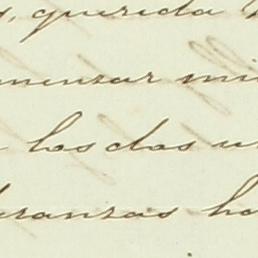 querida
menzar mi
las dos u
eranzas ha